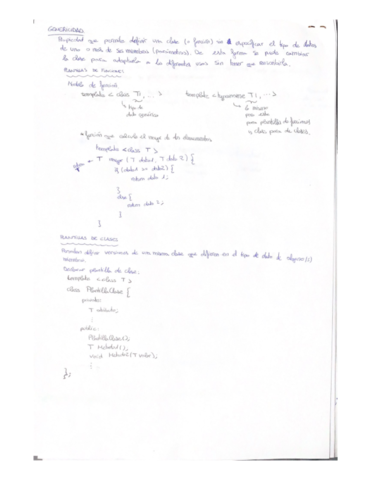 GENERICIDAD
Propiedad que permite definir una clase (o función) sin especificar el tipo de datos
de uno o más de sus miembros (parámetros). De esta forma se puede
la clase para adaptarla a los diferentes usos sin tener que reescribirla.
PLANTILLAS DE FUNCIONES
de función
template < class T1, ... >
template < typename T1, ... >
tipo de
dato
para plantillas de funciones
o clases para de clases.
función que calcula el mayor de dos elementos
template <class T>
T mayor (T dato1, T dato2) {
if (dato1 > dato2) {
return dato1;
}
else {
return dato2;
}
}
PLANTILLAS DE CLASES
Permiten definir versiones de una misma clase que difieren en el tipo de dato de alguno(s)
miembro.
Declarar plantilla de clase:
template <class T>
class PlantillaClase {
private:
T atributo;
public:
PlantillaClase();
T Metodo1();
void Metodo2(T valor);
};